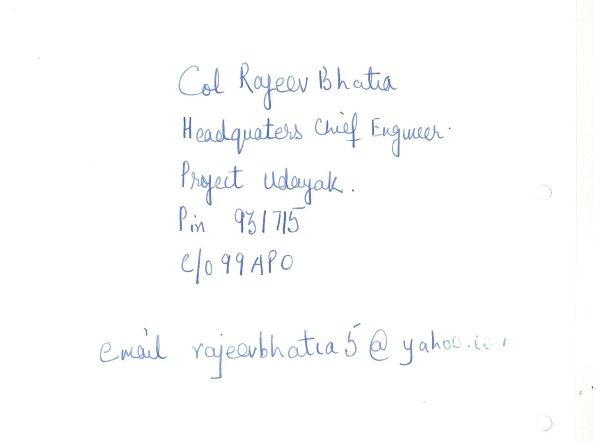 Col Rajeev Bhatia
Headquaters Chief Engineer.
Project Udayak.
Pin 931715
C/o 99 APO
email rajeevbhatia5@yahoo.